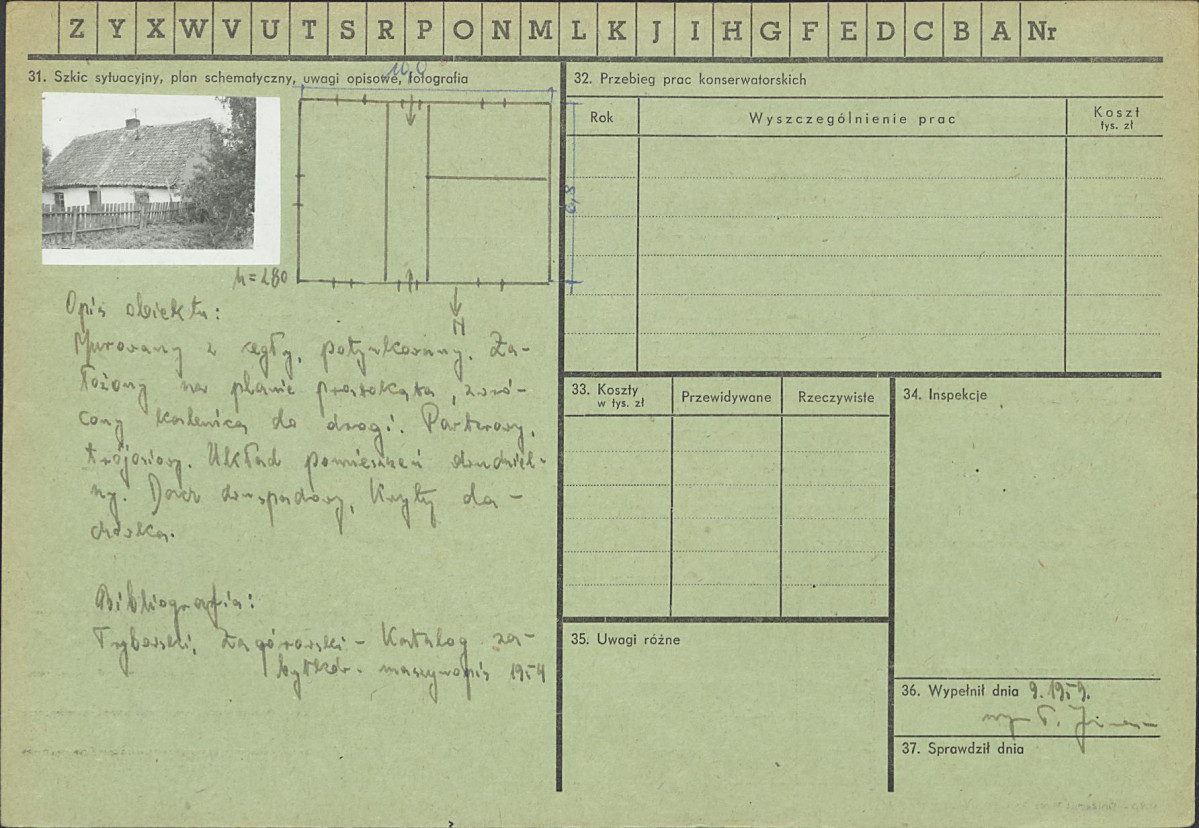 Z Y X W V U T S R P O N M L K J I H G F E D C B A Nr
31. Szkic sytuacyjny, plan schematyczny, uwagi opisowe, fotografia
10,0
6,8
h=280
N
Opis obiektu:
Murowany z cegły, potynkowany. Za-
łożony na planie prostokąta, zwró-
cony kalenicą do drogi. Parterowy,
trójosiowy. Układ pomieszczeń
ny. Dach dwuspadowy, kryty da-
chówką.
Bibliografia:
Trybowski, Zagórowski - Katalog za-
bytków - maszynopis 1954
32. Przebieg prac konserwatorskich
Rok
Wyszczególnienie prac
Koszt
tys. zł
33. Koszty
w tys. zł
Przewidywane
Rzeczywiste
34. Inspekcje
35. Uwagi różne
36. Wypełnił dnia 9.1959.
37. Sprawdził dnia